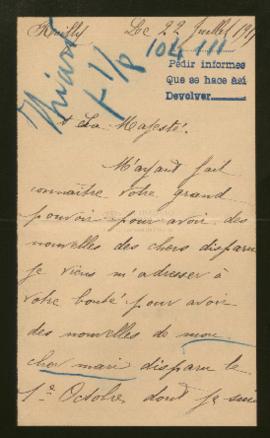 Le 22 Juillet 191
104 111
Pedir informes
Que se hace Así
Devolver
A Sa Majesté.
M'ayant fait
connaître votre grand
pouvoir pour avoir des
nouvelles des chers disparu
je viens m'adresser à
votre bonté pour avoir
des nouvelles de mon
cher mari disparu le
1e Octobre, dont je suis